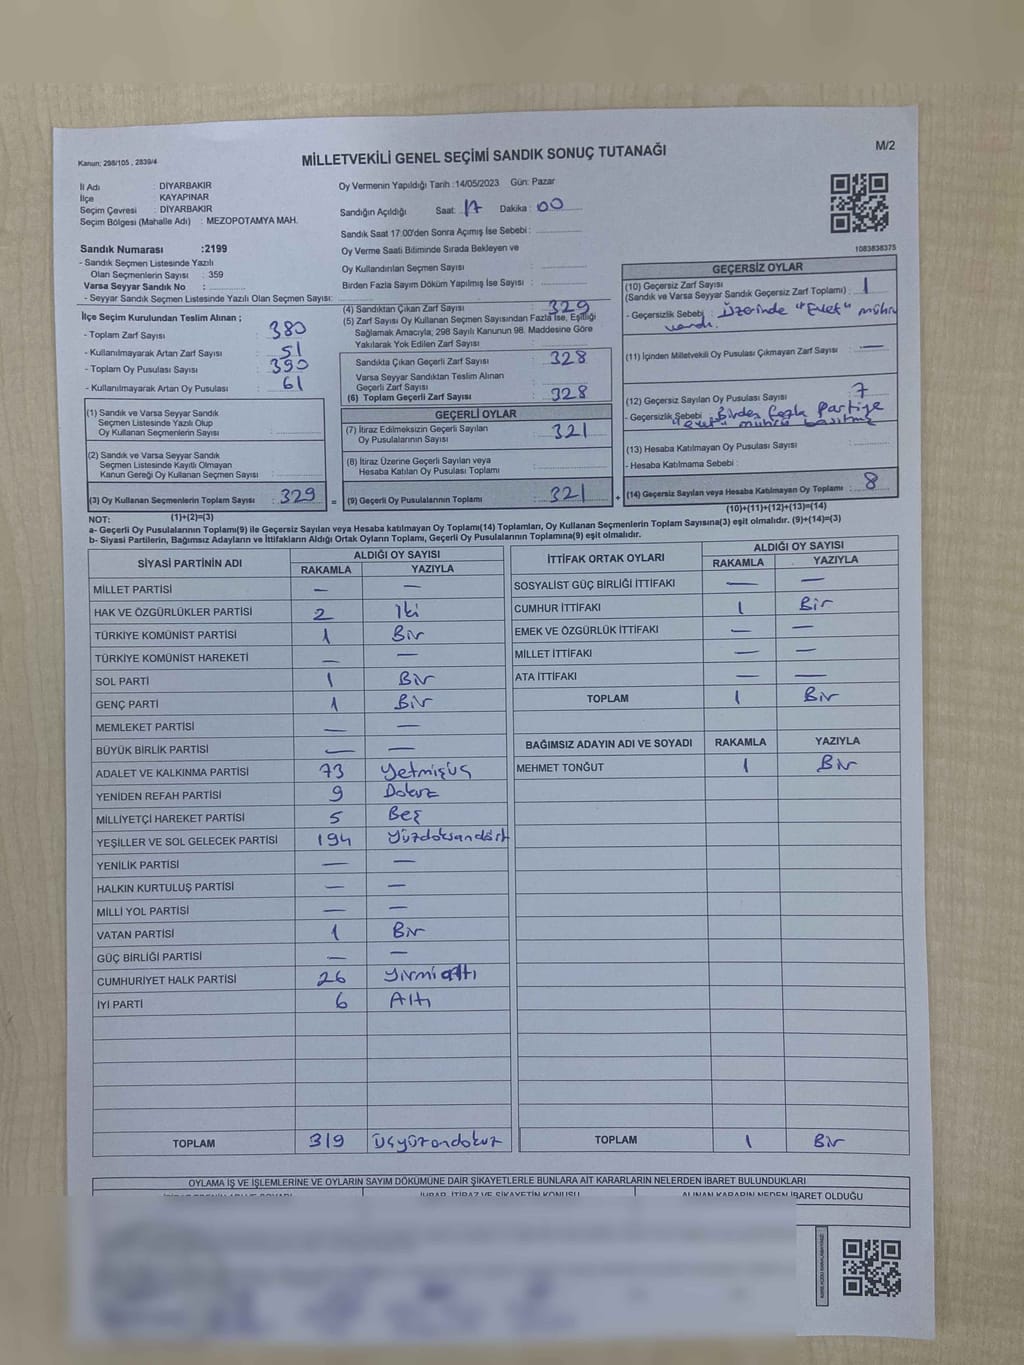 Kanun: 298/105 , 2839/4
MİLLETVEKİLİ GENEL SEÇİMİ SANDIK SONUÇ TUTANAĞI
M/2
İl Adı : DİYARBAKIR
İlçe : KAYAPINAR
Seçim Çevresi : DİYARBAKIR
Seçim Bölgesi (Mahalle Adı) : MEZOPOTAMYA MAH.
Oy Vermenin Yapıldığı Tarih :14/05/2023 Gün: Pazar
Sandığın Açıldığı Saat: 17 Dakika : 00
Sandık Saat 17:00'den Sonra Açımış İse Sebebi :
Sandık Numarası :2199
- Sandık Seçmen Listesinde Yazılı
Olan Seçmenlerin Sayısı : 359
Varsa Seyyar Sandık No :
- Seyyar Sandık Seçmen Listesinde Yazılı Olan Seçmen Sayısı:
Oy Verme Saati Bitiminde Sırada Bekleyen ve
Oy Kullandırılan Seçmen Sayısı :
Birden Fazla Sayım Döküm Yapılmış İse Sayısı :
1083838375
İlçe Seçim Kurulundan Teslim Alınan ;
- Toplam Zarf Sayısı : 380
- Kullanılmayarak Artan Zarf Sayısı : 51
- Toplam Oy Pusulası Sayısı : 390
- Kullanılmayarak Artan Oy Pusulası : 61
(1) Sandık ve Varsa Seyyar Sandık
Seçmen Listesinde Yazılı Olup
Oy Kullanan Seçmenlerin Sayısı :
(2) Sandık ve Varsa Seyyar Sandık
Seçmen Listesinde Kayıtlı Olmayan
Kanun Gereği Oy Kullanan Seçmen Sayısı :
(3) Oy Kullanan Seçmenlerin Toplam Sayısı : 329
(1)+(2)=(3)
(4) Sandıktan Çıkan Zarf Sayısı : 329
(5) Zarf Sayısı Oy Kullanan Seçmen Sayısından Fazla İse, Eşitliği
Sağlamak Amacıyla, 298 Sayılı Kanunun 98. Maddesine Göre
Yakılarak Yok Edilen Zarf Sayısı :
Sandıkta Çıkan Geçerli Zarf Sayısı : 328
Varsa Seyyar Sandıktan Teslim Alınan
Geçerli Zarf Sayısı :
(6) Toplam Geçerli Zarf Sayısı : 328
GEÇERLİ OYLAR
(7) İtiraz Edilmeksizin Geçerli Sayılan
Oy Pusulalarının Sayısı : 321
(8) İtiraz Üzerine Geçerli Sayılan veya
Hesaba Katılan Oy Pusulası Toplamı :
= (9) Geçerli Oy Pusulalarının Toplamı : 321 +
GEÇERSİZ OYLAR
(10) Geçersiz Zarf Sayısı
(Sandık ve Varsa Seyyar Sandık Geçersiz Zarf Toplamı) : 1
- Geçersizlik Sebebi : Üzerinde "Evet" mührü
vardı.
(11) İçinden Milletvekili Oy Pusulası Çıkmayan Zarf Sayısı : —
(12) Geçersiz Sayılan Oy Pusulası Sayısı : 7
- Geçersizlik Sebebi : Birden fazla Partiye
"evet" mührü
(13) Hesaba Katılmayan Oy Pusulası Sayısı :
- Hesaba Katılmama Sebebi :
(14) Geçersiz Sayılan veya Hesaba Katılmayan Oy Toplamı : 8
(10)+(11)+(12)+(13)=(14)
NOT:
a- Geçerli Oy Pusulalarının Toplamı(9) ile Geçersiz Sayılan veya Hesaba katılmayan Oy Toplamı(14) Toplamları, Oy Kullanan Seçmenlerin Toplam Sayısına(3) eşit olmalıdır. (9)+(14)=(3)
b- Siyasi Partilerin, Bağımsız Adayların ve İttifakların Aldığı Ortak Oyların Toplamı, Geçerli Oy Pusulalarının Toplamına(9) eşit olmalıdır.
SİYASİ PARTİNİN ADI ALDIĞI OY SAYISI
RAKAMLA YAZIYLA
MİLLET PARTİSİ — —
HAK VE ÖZGÜRLÜKLER PARTİSİ 2 İki
TÜRKİYE KOMÜNİST PARTİSİ 1 Bir
TÜRKİYE KOMÜNİST HAREKETİ — —
SOL PARTİ 1 Bir
GENÇ PARTİ 1 Bir
MEMLEKET PARTİSİ — —
BÜYÜK BİRLİK PARTİSİ — —
ADALET VE KALKINMA PARTİSİ 73 Yetmişüç
YENİDEN REFAH PARTİSİ 9 Dokuz
MİLLİYETÇİ HAREKET PARTİSİ 5 Beş
YEŞİLLER VE SOL GELECEK PARTİSİ 194 Yüzdoksandört
YENİLİK PARTİSİ — —
HALKIN KURTULUŞ PARTİSİ — —
MİLLİ YOL PARTİSİ — —
VATAN PARTİSİ 1 Bir
GÜÇ BİRLİĞİ PARTİSİ — —
CUMHURİYET HALK PARTİSİ 26 Yirmialtı
İYİ PARTİ 6 Altı
TOPLAM 319 Üçyüzondokuz
İTTİFAK ORTAK OYLARI ALDIĞI OY SAYISI
RAKAMLA YAZIYLA
SOSYALİST GÜÇ BİRLİĞİ İTTİFAKI — —
CUMHUR İTTİFAKI 1 Bir
EMEK VE ÖZGÜRLÜK İTTİFAKI — —
MİLLET İTTİFAKI — —
ATA İTTİFAKI — —
TOPLAM 1 Bir
BAĞIMSIZ ADAYIN ADI VE SOYADI RAKAMLA YAZIYLA
MEHMET TONĞUT 1 Bir
TOPLAM 1 Bir
OYLAMA İŞ VE İŞLEMLERİNE VE OYLARIN SAYIM DÖKÜMÜNE DAİR ŞİKAYETLERLE BUNLARA AİT KARARLARIN NELERDEN İBARET BULUNDUKLARI
İHBAR, İTİRAZ VE ŞİKAYETİN KONUSU ALINAN KARARIN NEDEN İBARET OLDUĞU